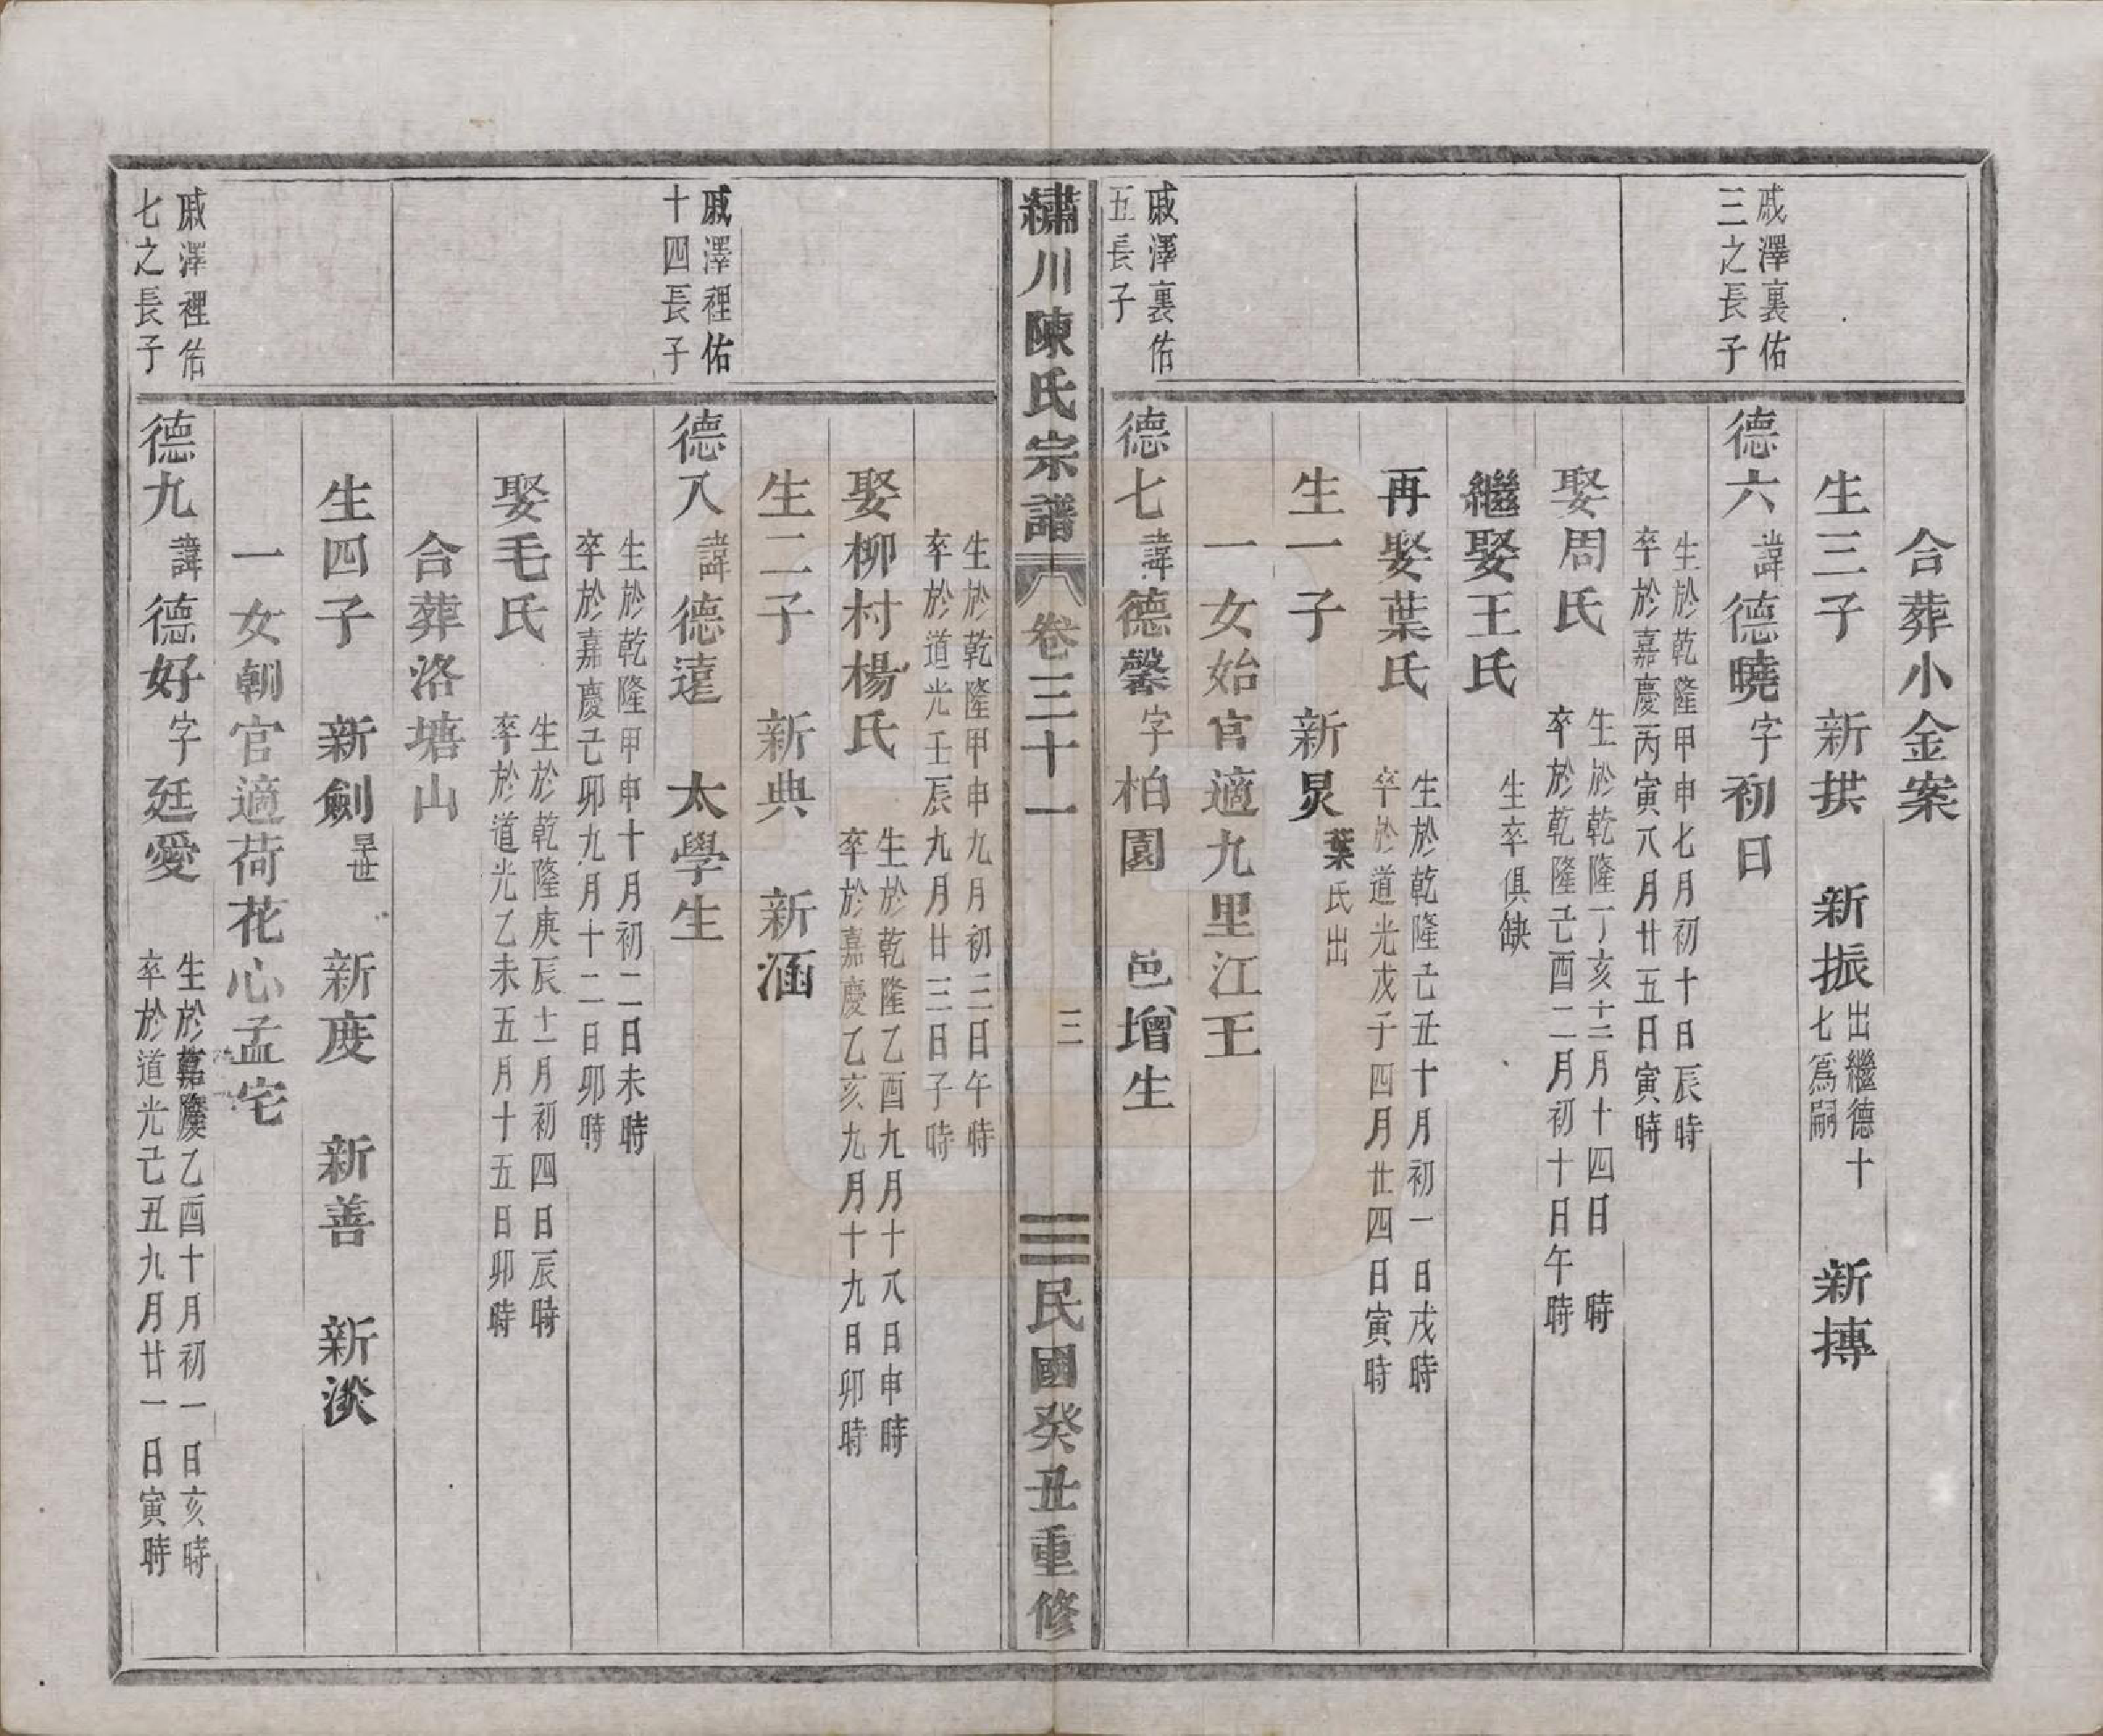 合葬小金案
生三子　新拱　新振出繼德十七爲嗣　新摶
戚澤裏佑三之長子
德六諱德曉字初日
生於乾隆甲申七月初十日辰時
卒於嘉慶丙寅八月廿五日寅時
娶周氏
生於乾隆丁亥十二月十四日　時
卒於乾隆己酉二月初十日午時
繼娶王氏　生卒俱缺
再娶葉氏
生於乾隆己丑十月初一日戌時
卒於道光戊子四月廿四日寅時
生一子　新炅葉氏出
一女始官適九里江王
戚澤裏佑五長子
德七諱德馨字柏園　邑增生
繡川陳氏宗譜　卷三十一　三　民國癸丑重修
生於乾隆甲申九月初三日午時
卒於道光壬辰九月廿三日子時
娶柳村楊氏
生於乾隆乙酉九月十八日申時
卒於嘉慶乙亥九月十九日卯時
生二子　新典　新涵
戚澤裡佑十四長子
德八諱德達　太學生
生於乾隆甲申十月初二日未時
卒於嘉慶己卯九月十二日卯時
娶毛氏
生於乾隆庚辰十一月初四日辰時
卒於道光乙未五月十五日卯時
合葬洛塘山
生四子　新劍早世　新度　新善　新淡
一女朝官適荷花心孟宅
戚澤裡佑七之長子
德九諱德好字廷愛
生於乙酉十月初一日亥時
卒於道光己丑九月廿一日寅時